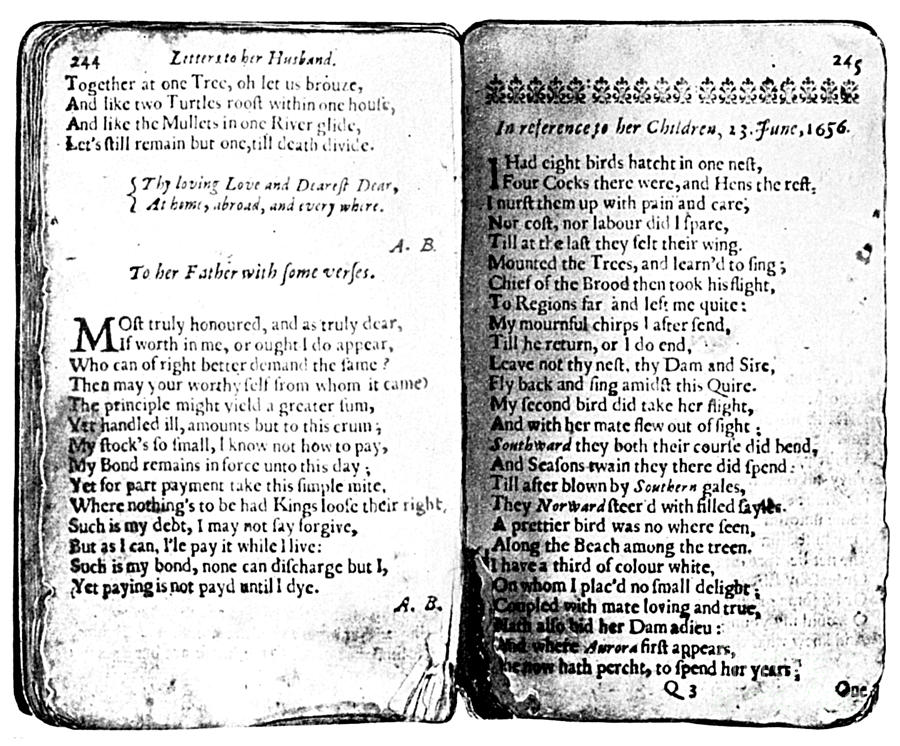 244 Letters to her Husband.
Together at one Tree, oh let us brouze,
And like two Turtles rooſt within one houſe,
And like the Mullets in one River glide,
Let's ſtill remain but one, till death divide.
Thy loving Love and Deareſt Dear,
At home, abroad, and every where.
A. B.
To her Father with ſome verſes.
MOſt truly honoured, and as truly dear,
If worth in me, or ought I do appear,
Who can of right better demand the ſame?
Then may your worthy ſelf from whom it came)
The principle might yield a greater ſum,
Yet handled ill, amounts but to this crum;
My ſtock's ſo ſmall, I know not how to pay,
My Bond remains in force unto this day;
Yet for part payment take this ſimple mite,
Where nothing's to be had Kings looſe their right,
Such is my debt, I may not ſay forgive,
But as I can, I'le pay it while I live:
Such is my bond, none can diſcharge but I,
Yet paying is not payd until I dye.
A. B.
245
In reference to her Children, 23. June, 1656.
I Had eight birds hatcht in one neſt,
Four Cocks there were, and Hens the reſt,
I nurſt them up with pain and care,
Nor coſt, nor labour did I ſpare,
Till at the laſt they felt their wing.
Mounted the Trees, and learn'd to ſing;
Chief of the Brood then took his flight,
To Regions far, and left me quite:
My mournful chirps I after ſend,
Till he return, or I do end,
Leave not thy neſt, thy Dam and Sire,
Fly back and ſing amidſt this Quire.
My ſecond bird did take her flight,
And with her mate flew out of ſight;
Southward they both their courſe did bend,
And Seaſons twain they there did ſpend:
Till after blown by Southern gales,
They Norward ſteer'd with filled ſayles.
A prettier bird was no where ſeen,
Along the Beach among the treen.
I have a third of colour white,
On whom I plac'd no ſmall delight;
Coupled with mate loving and true,
Hath alſo bid her Dam adieu:
And where Aurora firſt appears,
now hath percht, to ſpend her years;
Q 3 One